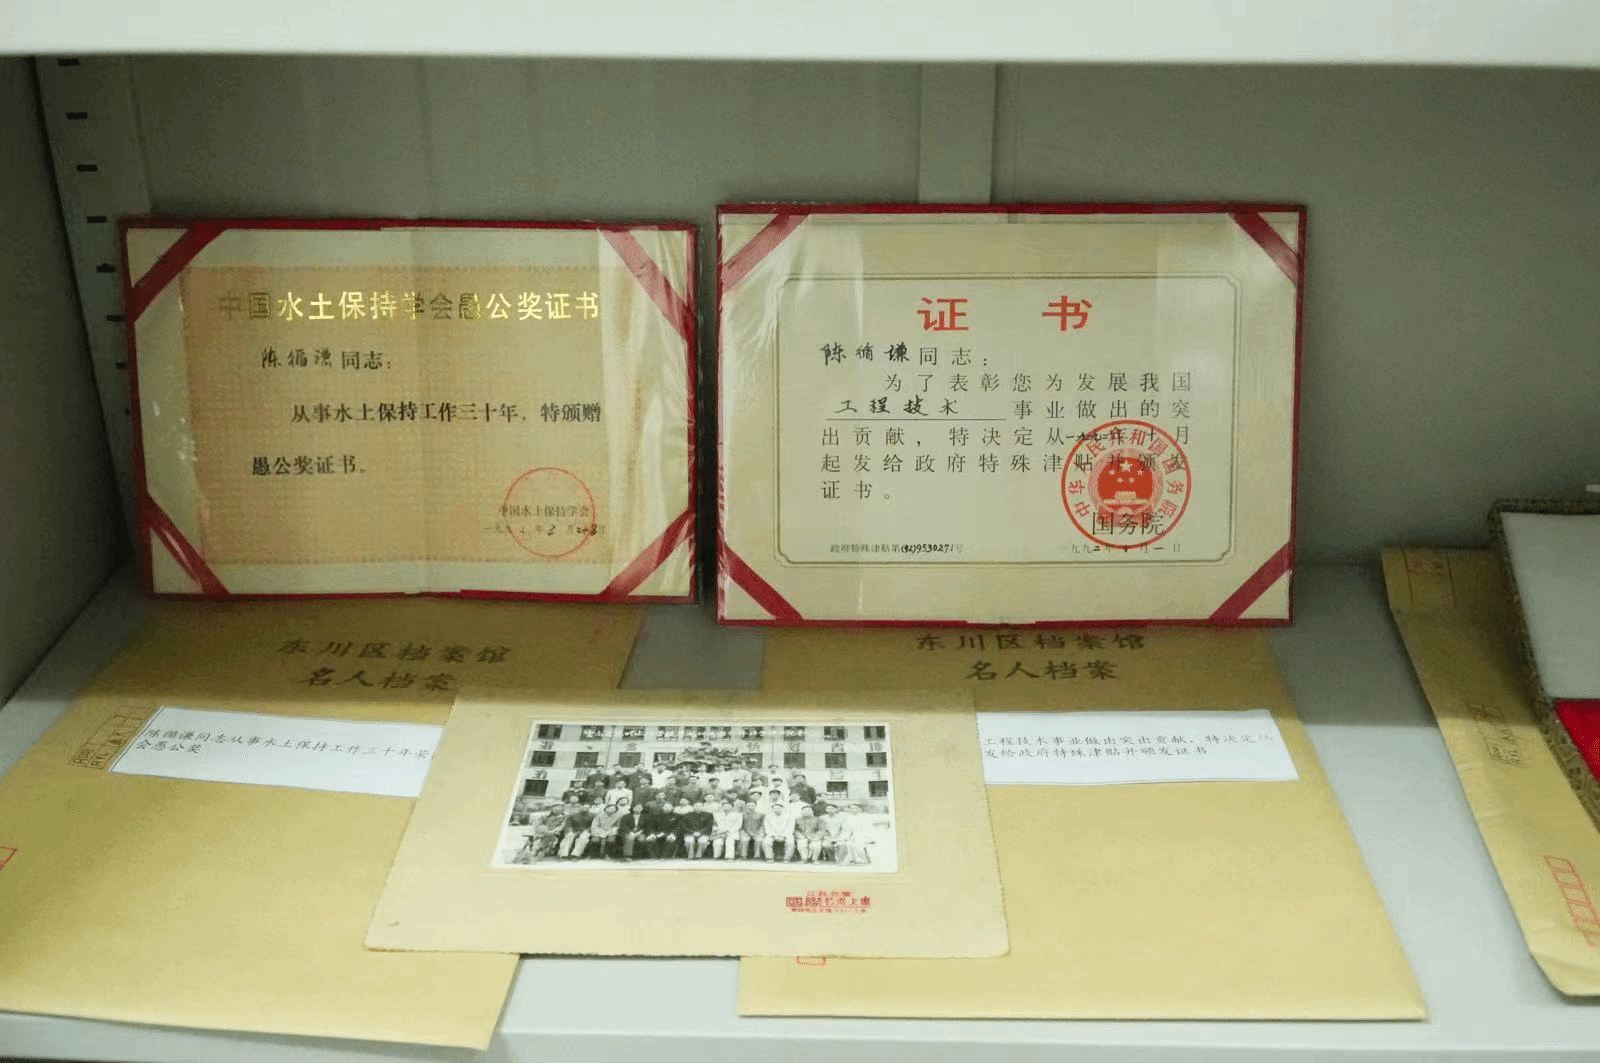 中国水土保持学会愚公奖证书
陈循谦同志：
从事水土保持工作三十年，特颁赠
愚公奖证书。
中国水土保持学会
证 书
陈循谦同志：
为了表彰您为发展我国
工程技术 事业做出的突
出贡献，特决定从一九九二年十月
起发给政府特殊津贴并颁发
证书。
中华人民共和国国务院
国务院
政府特殊津贴第(92)9530271号
一九九二年十月一日
东川区档案馆
名人档案
陈循谦同志从事水土保持工作三十年荣
会愚公奖
东川区档案馆
名人档案
工程技术事业做出突出贡献，特决定从
发给政府特殊津贴并颁发证书